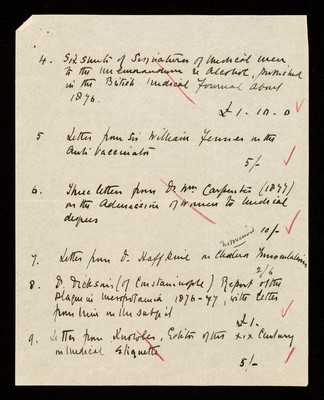 4. Six sheets of Signatures of Medical men
to the Memorandum re Alcohol, published
in the British Medical Journal about
1876.
£1-10-0
5 Letter from Sir William Jenner on the
Anti Vaccinator
5/-
6. Three letters from Dr Wm Carpenter (1877)
on the Admission of Women to Medical
degrees
10/-
7. Letter from D. Haffkine on Cholera Innoculations
2/6
8. D. Dickson, (of Constantinople) Report of the
Plague in Mesopotamia 1876-77, with letter
from him on the subject
£1-
9. Letter from Knowles, Editor of the XIX Century
on Medical Etiquette
5/-